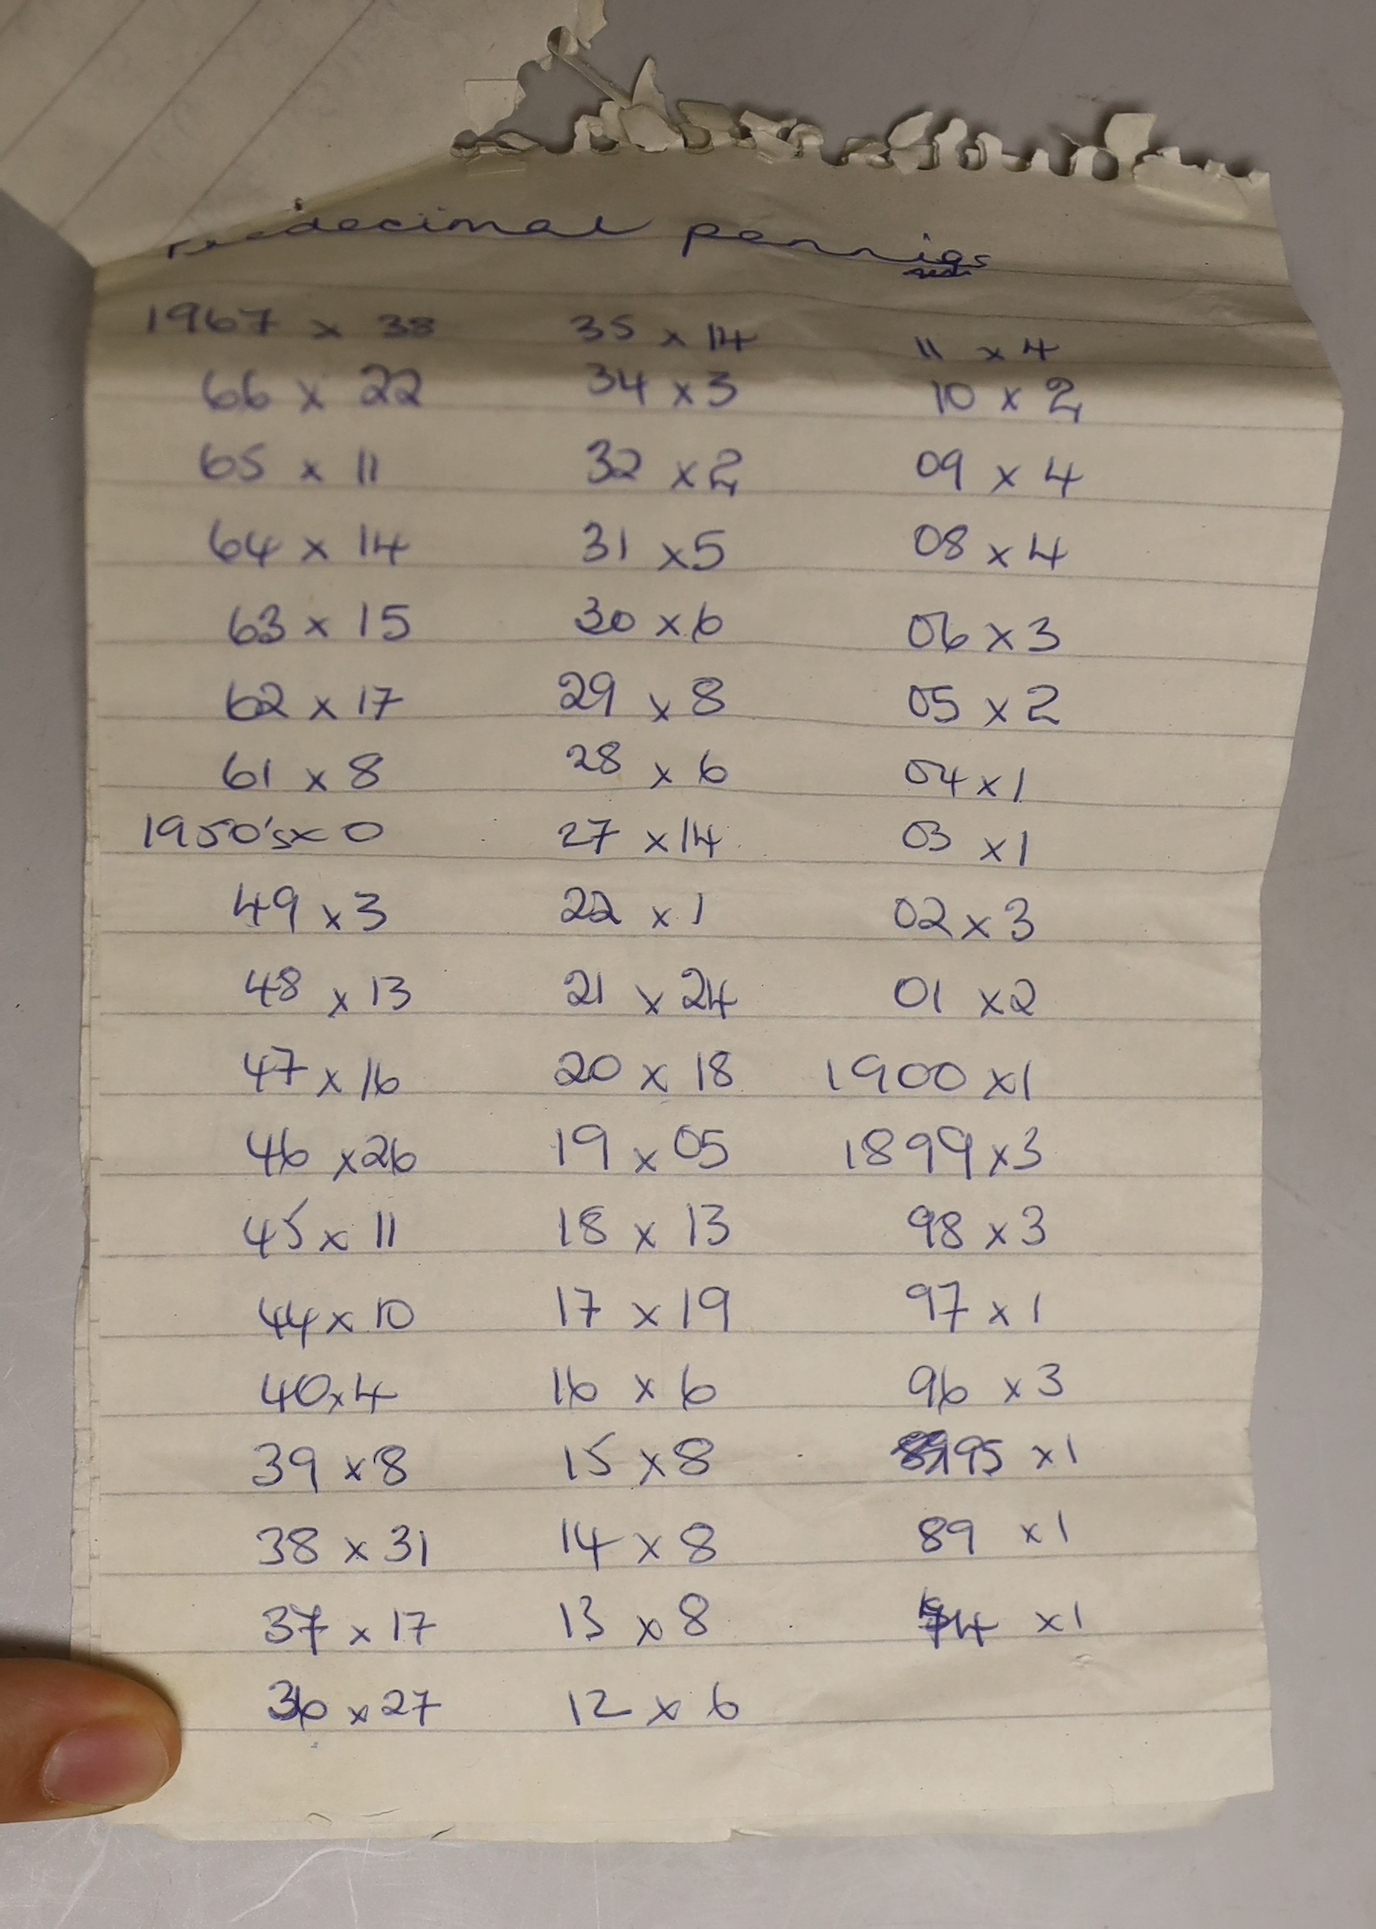 Predecimal pennies
1967 x 38 35 x 14 11 x 4
66 x 22 34 x 3 10 x 2
65 x 11 32 x 2 09 x 4
64 x 14 31 x 5 08 x 4
63 x 15 30 x 6 06 x 3
62 x 17 29 x 8 05 x 2
61 x 8 28 x 6 04 x 1
1950's x 0 27 x 14 03 x 1
49 x 3 22 x 1 02 x 3
48 x 13 21 x 24 01 x 2
47 x 16 20 x 18 1900 x 1
46 x 26 19 x 05 1899 x 3
45 x 11 18 x 13 98 x 3
44 x 10 17 x 19 97 x 1
40 x 4 16 x 6 96 x 3
39 x 8 15 x 8 95 x 1
38 x 31 14 x 8 89 x 1
37 x 17 13 x 8 x 1
36 x 27 12 x 6